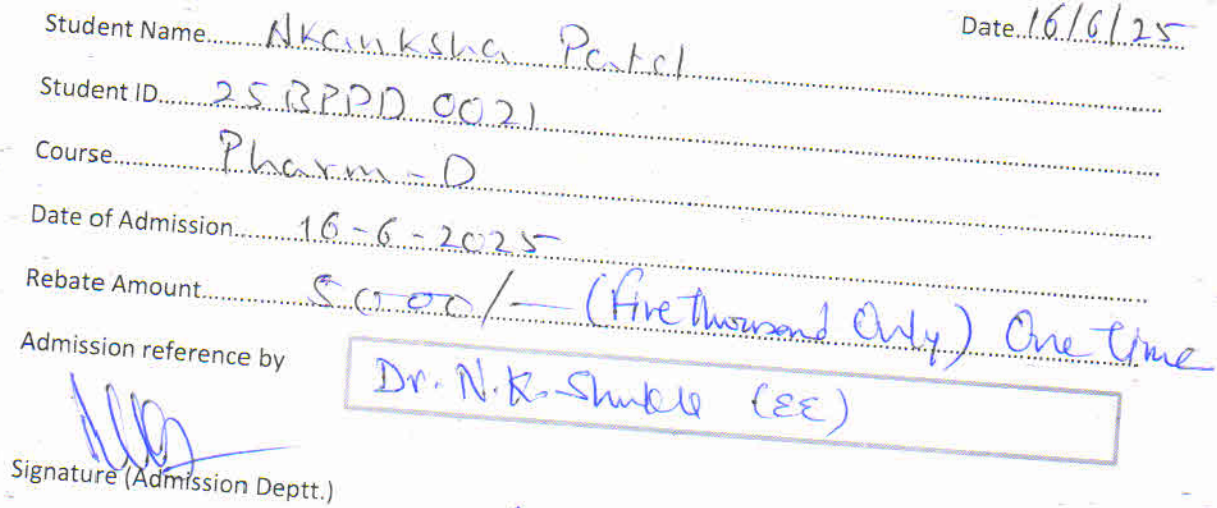 Date 16/6/25
Student Name Akanksha Patel
Student ID 25BPPD0021
Course Pharm-D
Date of Admission 16-6-2025
Rebate Amount 5000/- (Five thousand Only) One time
Admission reference by Dr. N.K. Shukla (EE)
Signature (Admission Deptt.)